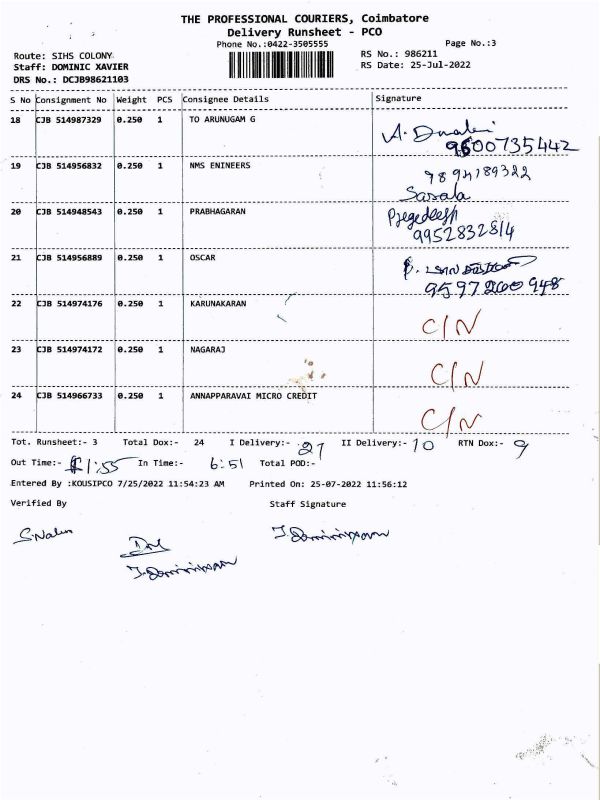 THE PROFESSIONAL COURIERS, Coimbatore
Delivery Runsheet - PCO
Phone No.:0422-3505555 Page No.:3
Route: SIHS COLONY RS No.: 986211
Staff: DOMINIC XAVIER RS Date: 25-Jul-2022
DRS No.: DCJB98621103
S No Consignment No Weight PCS Consignee Details Signature
18 CJB 514987329 0.250 1 TO ARUNUGAM G
9600735442
19 CJB 514956832 0.250 1 NMS ENINEERS 9894189322
Sarala
20 CJB 514948543 0.250 1 PRABHAGARAN
9952832814
21 CJB 514956889 0.250 1 OSCAR
9597260948
22 CJB 514974176 0.250 1 KARUNAKARAN C/N
23 CJB 514974172 0.250 1 NAGARAJ C/N
24 CJB 514966733 0.250 1 ANNAPPARAVAI MICRO CREDIT C/N
Tot. Runsheet:- 3 Total Dox:- 24 I Delivery:- 21 II Delivery:- 10 RTN Dox:- 9
Out Time:- 11:55 In Time:- 6:51 Total POD:-
Entered By :KOUSIPCO 7/25/2022 11:54:23 AM Printed On: 25-07-2022 11:56:12
Verified By Staff Signature